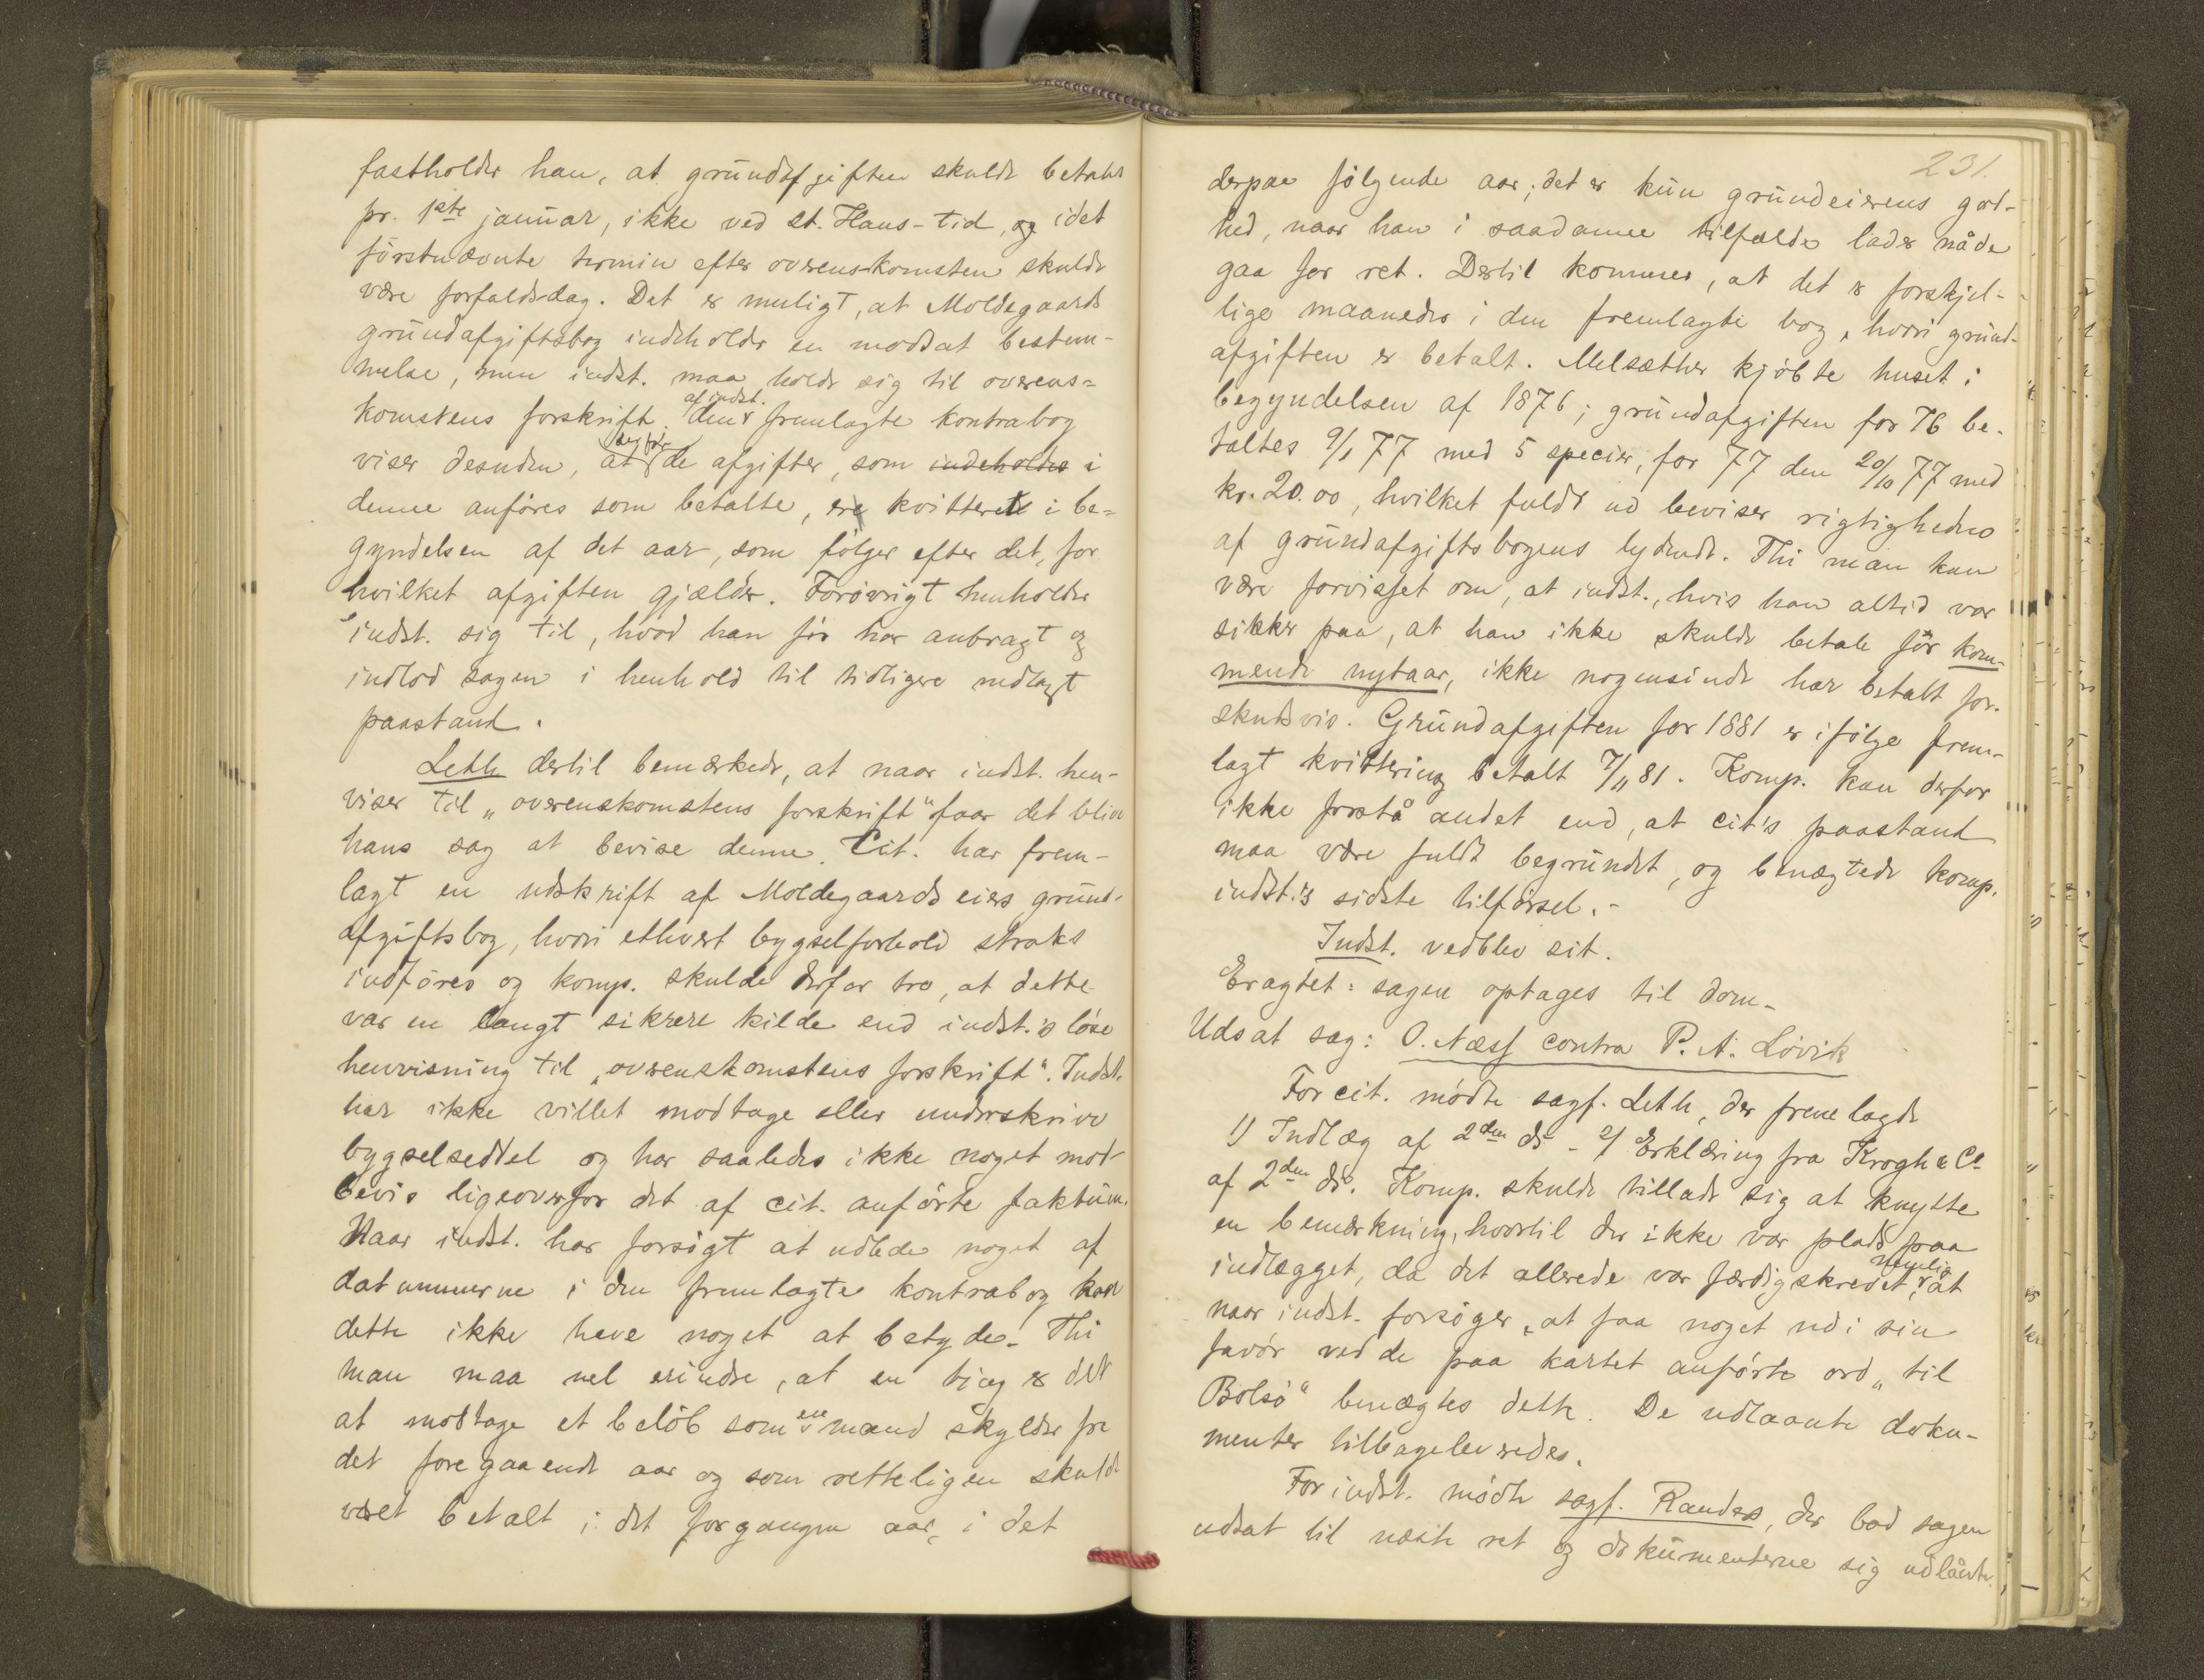 fastholder han, at grundafgiften skulde betales
pr. 1ste januar, ikke ved St. Hans-tid, og idet
förstnævnte termin efter overenskomsten skulde
være forfaldsdag. Det er muligt, at Moldegaards
grundafgiftsbog indeholder en modsat bestem-
melse, men indst. maa holde sig til overens=
komstens forskrift. Den af indst. fremlagte kontrabog
viser desuden, at de afgifter, som indeholdes i
denne anføres som betalte, ere kvitterte i be=
gyndelsen af det aar, som følger efter det, for
hvilket afgiften gjælder. Forøvrigt henholder
indst. sig til, hvad han før har anbragt og
indlod sagen i henhold til tidligere nedlagt
paastand.
Leth dertil bemærkede, at naar indst. hen-
viser til „overenskomstens forskrift" faar det blive
hans sag at bevise denne. Cit. har frem-
lagt en udskrift af Moldegaards eiers grund-
afgiftsbog, hvori ethvert bygselforhold straks
indføres og komp. skulde derfor tro, at dette
var en langt sikrere kilde end indst.'s løse
henvisning til „overenskomstens forskrift". Indst.
har ikke villet modtage eller underskrive
bygselseddel og har saaledes ikke noget mod-
bevis ligeoverfor det af cit. anførte faktum.
Naar indst. har forsøgt at udlede noget af
datummerne i den fremlagte kontrabog kan
dette ikke have noget at betyde. Thi
man maa vel erindre, at en ting er det
at modtage et beløb som en mand skylder fra
det foregaaende aar og som retteligen skulde
været betalt i det forgangne aar, i det
231.
derpaa følgende aar; det er kun grundeierens god-
hed, naar han i saadanne tilfælde lader nåde
gaa for ret. Dertil kommer, at det er forskjel-
lige maaneder i den fremlagte bog, hvori grund-
afgiften er betalt. Melsæther kjøbte huset i
begyndelsen af 1876; grundafgiften for 76 be-
taltes 9/1 77 med 5 specier, for 77 den 20/10 77 med
kr. 20.00, hvilket fuldt ud beviser rigtigheden
af grundafgiftsbogens lydende. Thi man kan
være forvisset om, at indst., hvis han altid var
sikker paa, at han ikke skulde betale før kom-
mende nytaar, ikke nogensinde har betalt for-
skudsvis. Grundafgiften for 1881 er ifølge frem-
lagt kvittering betalt 7/11 81. Komp. kan derfor
ikke forstå andet end, at cit's paastand
maa være fuldt begrundet, og benægtede komp.
indst.'s sidste tilførsel.-
Indst. vedblev sit.
Eragtet: sagen optages til dom-
Udsat sag: O. Næss contra P. A. Løvik
For cit. mødte sagf. Leth, der fremlagde
1) Indlæg af 2den ds - 2) Erklæring fra Krogh & Co
af 2den ds. Komp. skulde tillade sig at knytte
en bemærkning, hvortil der ikke var plads paa
indlægget, da det allerede var færdigskrevet, nemlig at
naar indst. forsøger, at faa noget ud i sin
favør ved de paa kartet anførte ord „til
Bolsø" benægtes dette. De udlaante doku-
menter tilbageleveredes.
For indst. mødte sagf. Randers, der bad sagen
udsat til næste ret og dokumenterne sig udlånte.